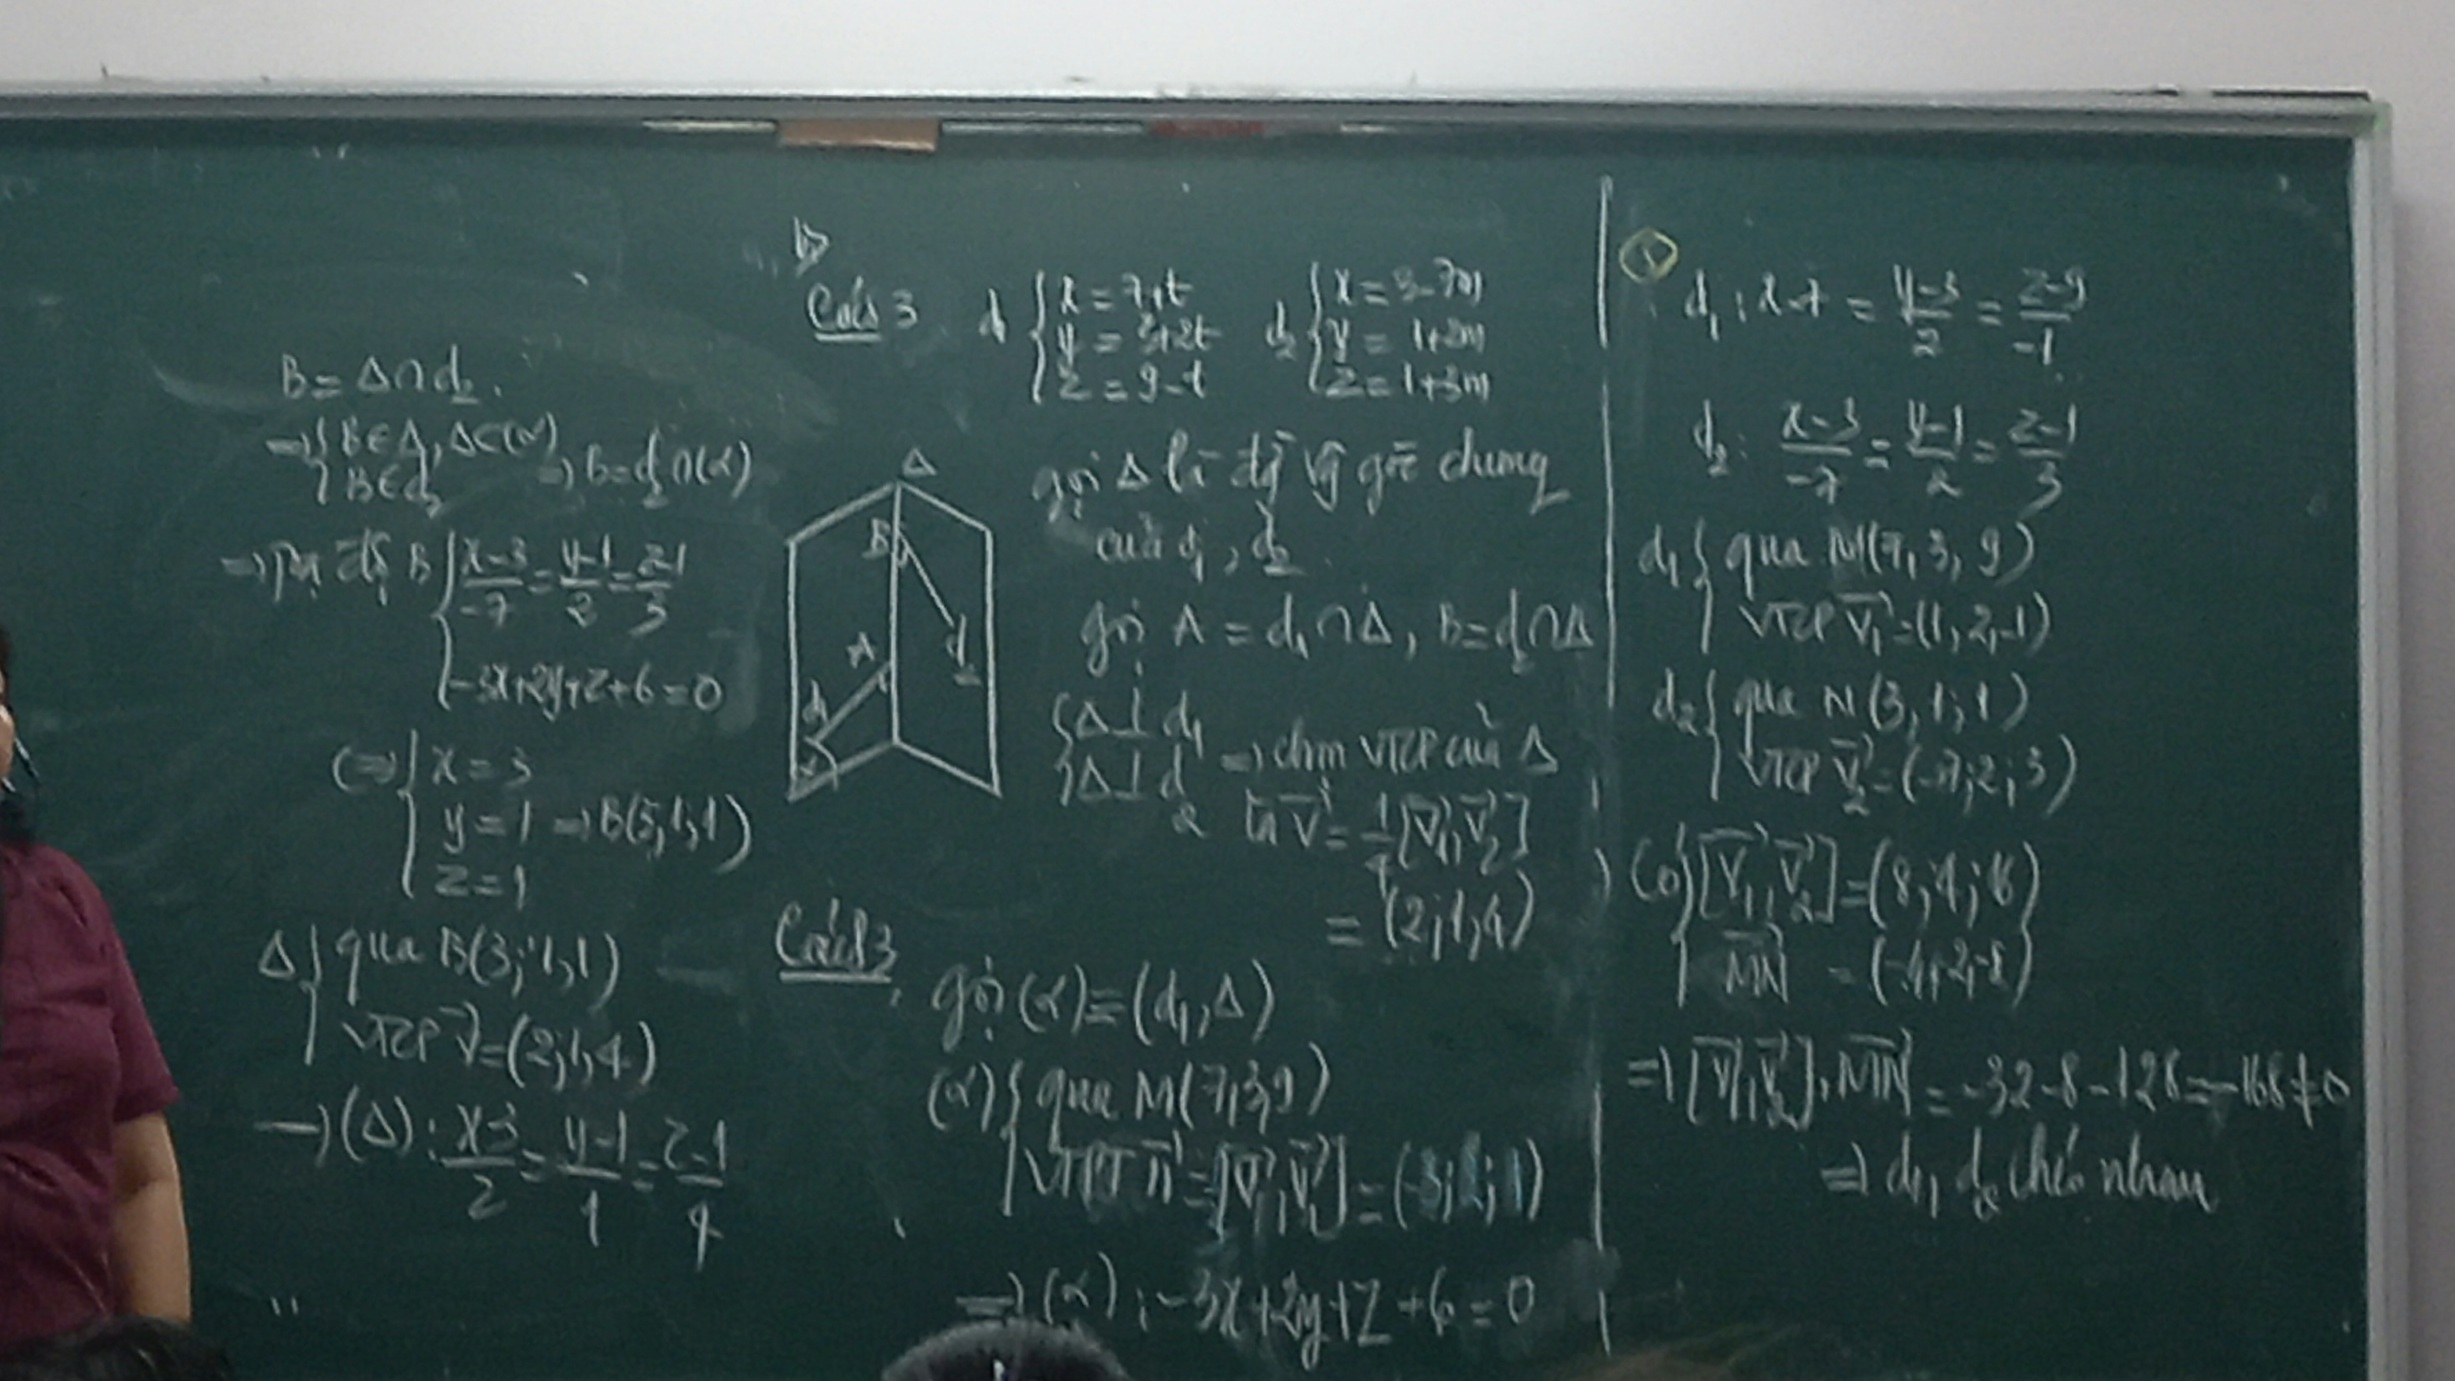 B = Δ∩d₂.
⇒ { B∈Δ, Δ⊂(α)
B∈d₂ ⇒ B=d₂∩(α)
⇒ Tọa độ B { (x-3)/-7 = (y-1)/2 = (z-1)/3
-3x+2y+z+6=0
⇔ { x = 3
y = 1 ⇒ B(3;1;1)
z = 1
Δ { qua B(3;1;1)
VTCP v⃗=(2;1;4)
⇒ (Δ): (x-3)/2 = (y-1)/1 = (z-1)/4
b)
Cách 3 d₁ { x = 7+t
y = 3+2t
z = 9-t
d₂ { x = 3-7m
y = 1+2m
z = 1+3m
gọi Δ là đg vg góc chung
của d₁, d₂.
gọi A = d₁∩Δ, B=d₂∩Δ
{ Δ⊥d₁
Δ⊥d₂ ⇒ chọn VTCP của Δ
là v⃗ = 1/4[v⃗₁, v⃗₂]
= (2;1;4)
Δ
B
A
d₂
d₁
α
Cách 3.
gọi (α)=(d₁,Δ)
(α) { qua M(7,3,9)
VTPT n⃗ = [v⃗, v⃗₁] = (-3;2;1)
⇒ (α): -3x+2y+z+6=0
1
d₁: x-7 = (y-3)/2 = (z-9)/-1
d₂: (x-3)/-7 = (y-1)/2 = (z-1)/3
d₁ { qua M(7,3,9)
VTCP v⃗₁=(1,2,-1)
d₂ { qua N(3,1,1)
VTCP v⃗₂=(-7;2;3)
Có { [v⃗₁,v⃗₂]=(8;4;16)
MN⃗ = (-4,-2,-8)
⇒ [v⃗₁,v⃗₂].MN⃗ = -32-8-128=-168≠0
⇒ d₁, d₂ chéo nhau